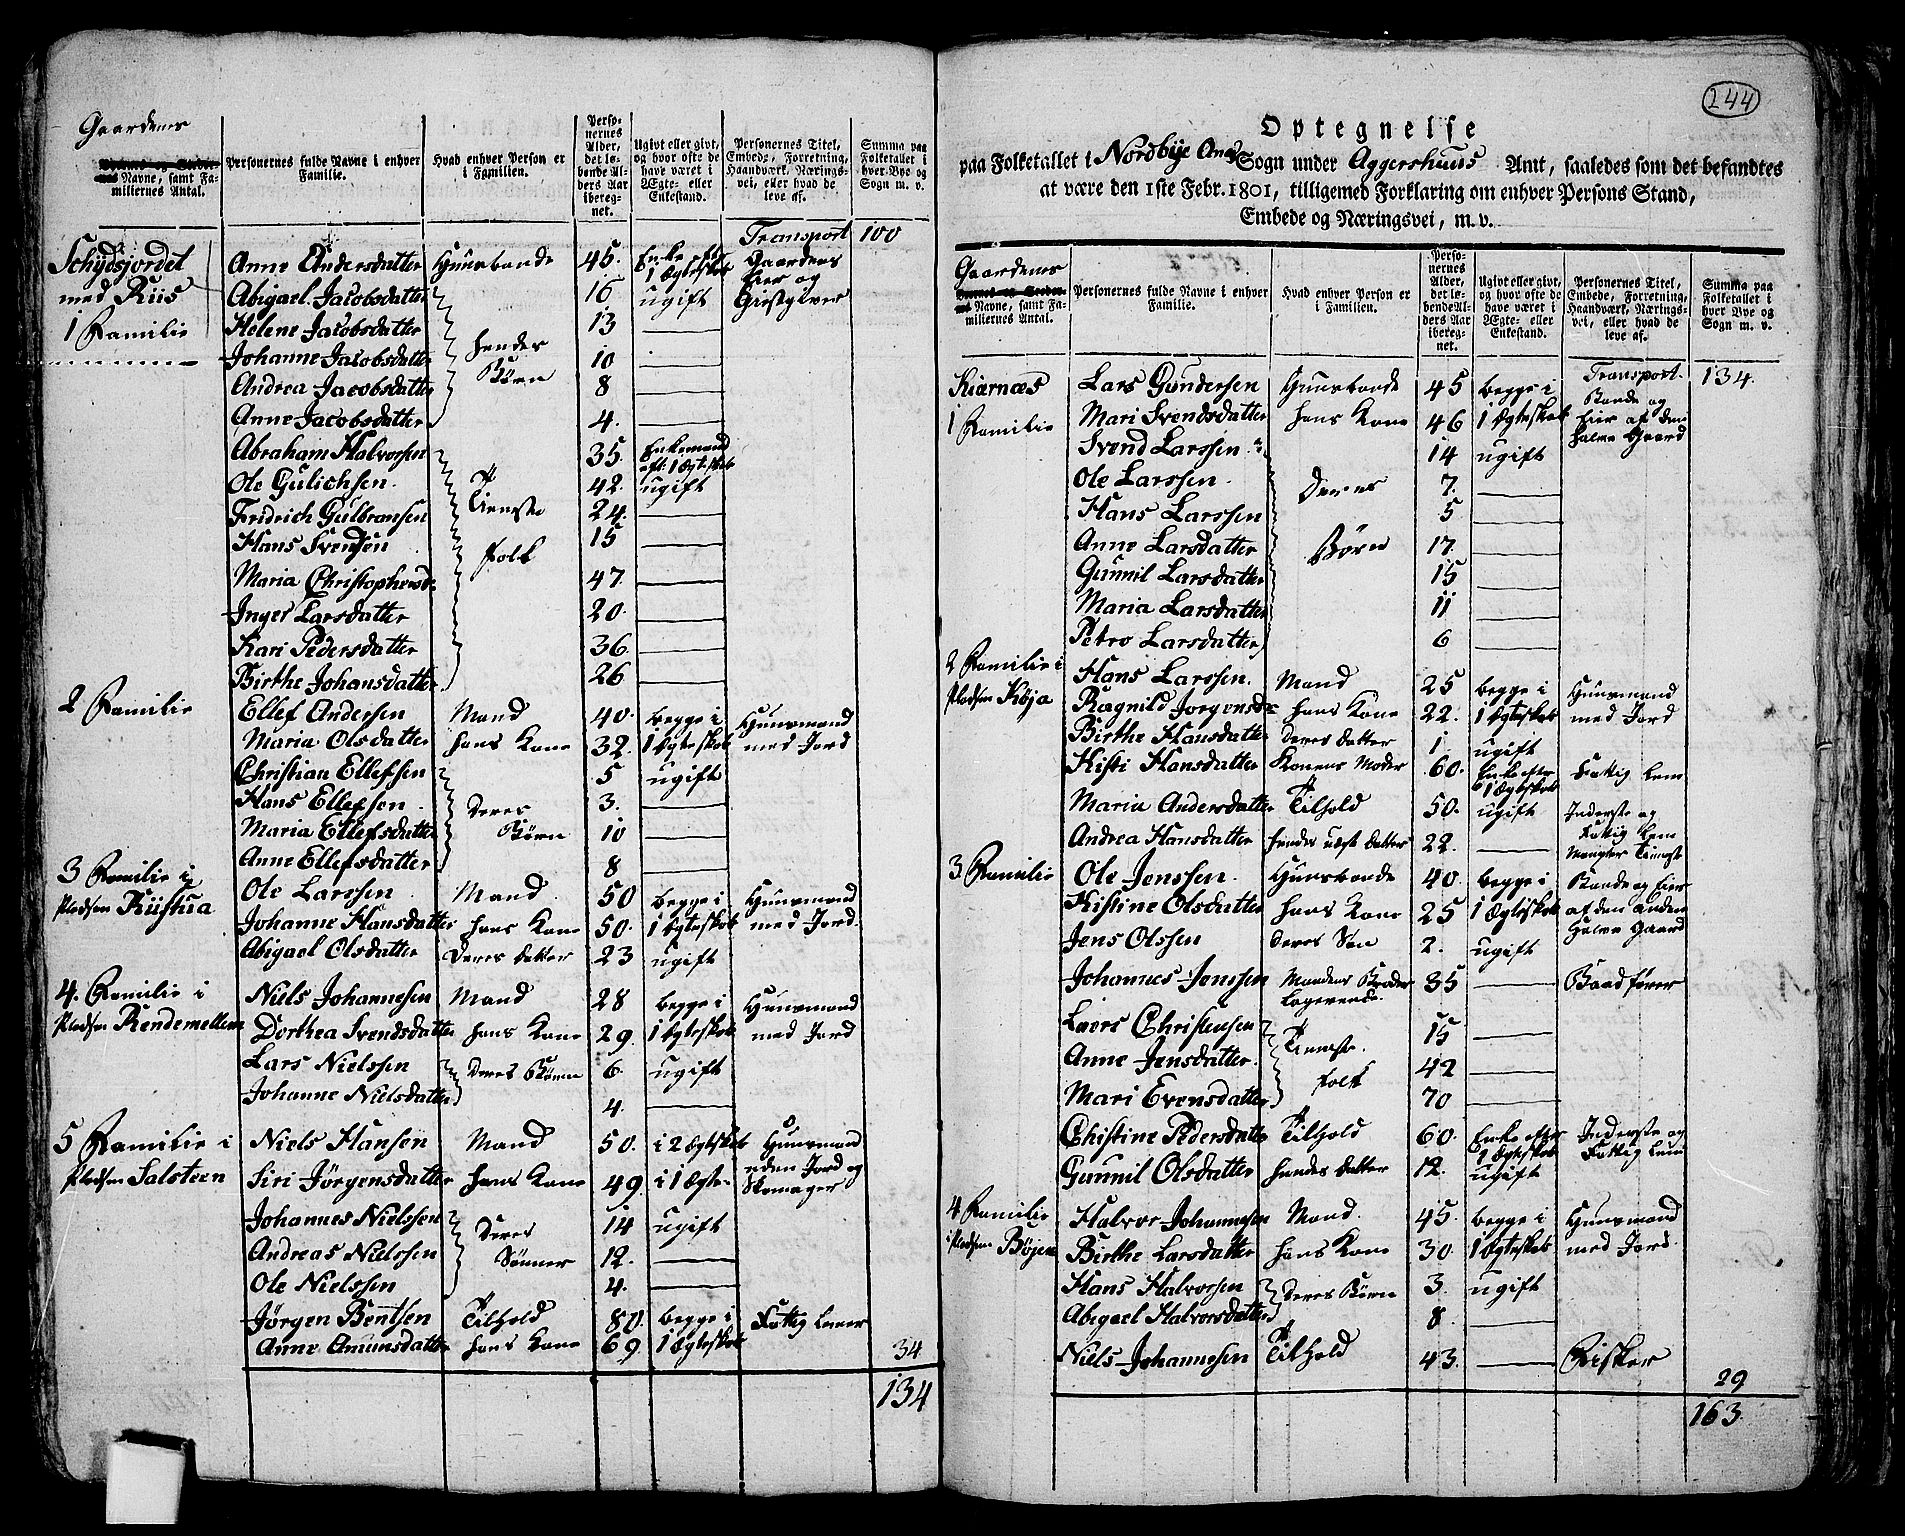 Gaardenes
Byernes og Stedernes Navne, samt Familiernes Antal.
Personernes fulde Navne i enhver Familie.
Hvad enhver Person er i Familien.
Personernes Alder, det løbende Alders Aar iberegnet.
Ugivt eller givt, og hvor ofte de have været i Ægte- eller Enkestand.
Personernes Titel, Embede, Forretning, Haandværk, Næringsvei, eller hvad de leve af.
Summa paa Folketallet i hver Bye og Sogn m. v.
Transport 100
Schydsjordet Anne Andersdatter Huusbonde 45. Enke eft. 1 Ægteskab Gaardens Eier og Giestgiver
med Riis Abigael Jacobsdatter 16 ugift
1 Familie Helene Jacobsdatter hendes 13 —
Johanne Jacobsdatter Børn 10 —
Andrea Jacobsdatter 8 —
Anne Jacobsdatter 4. —
Abraham Halvorsen 35. Enkemand eft. 1 Ægteskab
Ole Gulichsen. Tieneste 42. ugift
Fridrich Gulbransen 24. —
Hans Svensen folk 15 —
Maria Christophersd. 47. —
Inger Larsdatter 20. —
Kari Pedersdatter 36. —
Birthe Johansdatter 26 —
2 Familie Ellef Andersen Mand 40. begge i Huusmand
Maria Olsdatter hans Kone 32. 1 Ægteskab med Jord
Christian Ellefsen 5 ugift
Hans Ellefsen Deres 3. —
Maria Ellefsdatter Børn 10 —
Anne Ellefsdatter 8 —
3 Familie i Ole Larssen Mand 50 begge i Huusmand
Pladsen Kustua Johanne Hansdatter hans Kone 50. 1 Ægteskab med Jord.
Abigael Olsdatter Deres datter 23 ugift
4. Familie i Niels Johannesen Mand 28 begge i Huusmand
Pladsen Rendemellem Dorthea Svendsdatter hans Kone 29. 1 Ægteskab med Jord
Lars Nielssen Deres Børn 6. ugift
Johanne Nielsdatter 4. —
5 Familie i Niels Hansen Mand 50. i 2 Ægteskab Huusmand
Pladsen Salsteen Siri Jørgensdatter hans Kone 49. i 1 Ægte- uden Jord og Skomager
Johannes Nielssen Deres 14 ugift
Andreas Nielssen Sønner 12. —
Ole Nielssen 4. —
Jørgen Bentsen Tilhold 80. begge i Fattig Lemer
Anne Amunsdatter hans Kone 69 1 Ægteskab 34
134
244
Optegnelse
paa Folketallet i Nordbye Anex Sogn under Aggershuus Amt, saaledes som det befandtes
at være den 1ste Febr. 1801, tilligemed Forklaring om enhver Persons Stand,
Embede og Næringsvei, m. v.
Gaardenes
Byernes og Stedernes Navne, samt Familiernes Antal.
Personernes fulde Navne i enhver Familie.
Hvad enhver Person er i Familien.
Personernes Alder, det løbende Alders Aar iberegnet.
Ugivt eller givt, og hvor ofte de have været i Ægte- eller Enkestand.
Personernes Titel, Embede, Forretning, Haandværk, Næringsvei, eller hvad de leve af.
Summa paa Folketallet i hver Bye og Sogn m. v.
Transport 134.
Kiærnæs Lars Gundersen Huusbonde 45 begge i Bonde og
1 Familie Mari Svendsdatter hans Kone 46 1 Ægteskab Eier af den halve Gaard
Svend Larssen. 14 ugift
Ole Larssen. Deres 7. —
Hans Larssen 5 —
Anne Larsdatter Børn 17. —
Gunnil Larsdatter 15 —
Maria Larsdatter 11 —
Petro Larsdatter 6 —
2 Familie i Hans Larssen. Mand 25 begge i Huusmand
Pladsen Køja Ragnild Jorgensdr hans Kone 22. 1 Ægteskab med Jord
Birthe Hansdatter deres datter 1. ugift
Kisti Hansdatter Konens Moder 60. Enke efter 1 Ægteskab Fattig Lem
Maria Andersdatter Tilhold 50. ugift Inderste og Fattig Lem
Andrea Hansdatter hendes uægt datter 22. — Mangler Tieneste
3 Familie Ole Jenssen. Huusbonde 40. begge i Bonde og Eier
Kistine Olsdatter hans Kone 25 1 Ægteskab af den anden halve Gaard
Jens Olssen deres Søn 2. ugift
Johannes Jenssen Mandens Broder Logerende. 35 — Baadfører
Laers Christensen 15 —
Anne Jensdatter Tieneste. 42 —
Mari Evensdatter folk 70 —
Christine Pedersdatter Tilhold 60. Enke efter 1 Ægteskab Inderste og Fattig Lem
Gunnil Olsdatter hendes datter 12. ugift
4 Familie Halvor Johannesen Mand. 45. begge i Huusmand
i Pladsen Bøjen Birthe Larsdatter hans Kone 30. 1 Ægteskab med Jord.
Hans Halvorsen Deres Børn 3. ugift
Abigael Halvorsdatter 8. —
Niels Johannesen Tilhold 43. — Fisker
29
163.